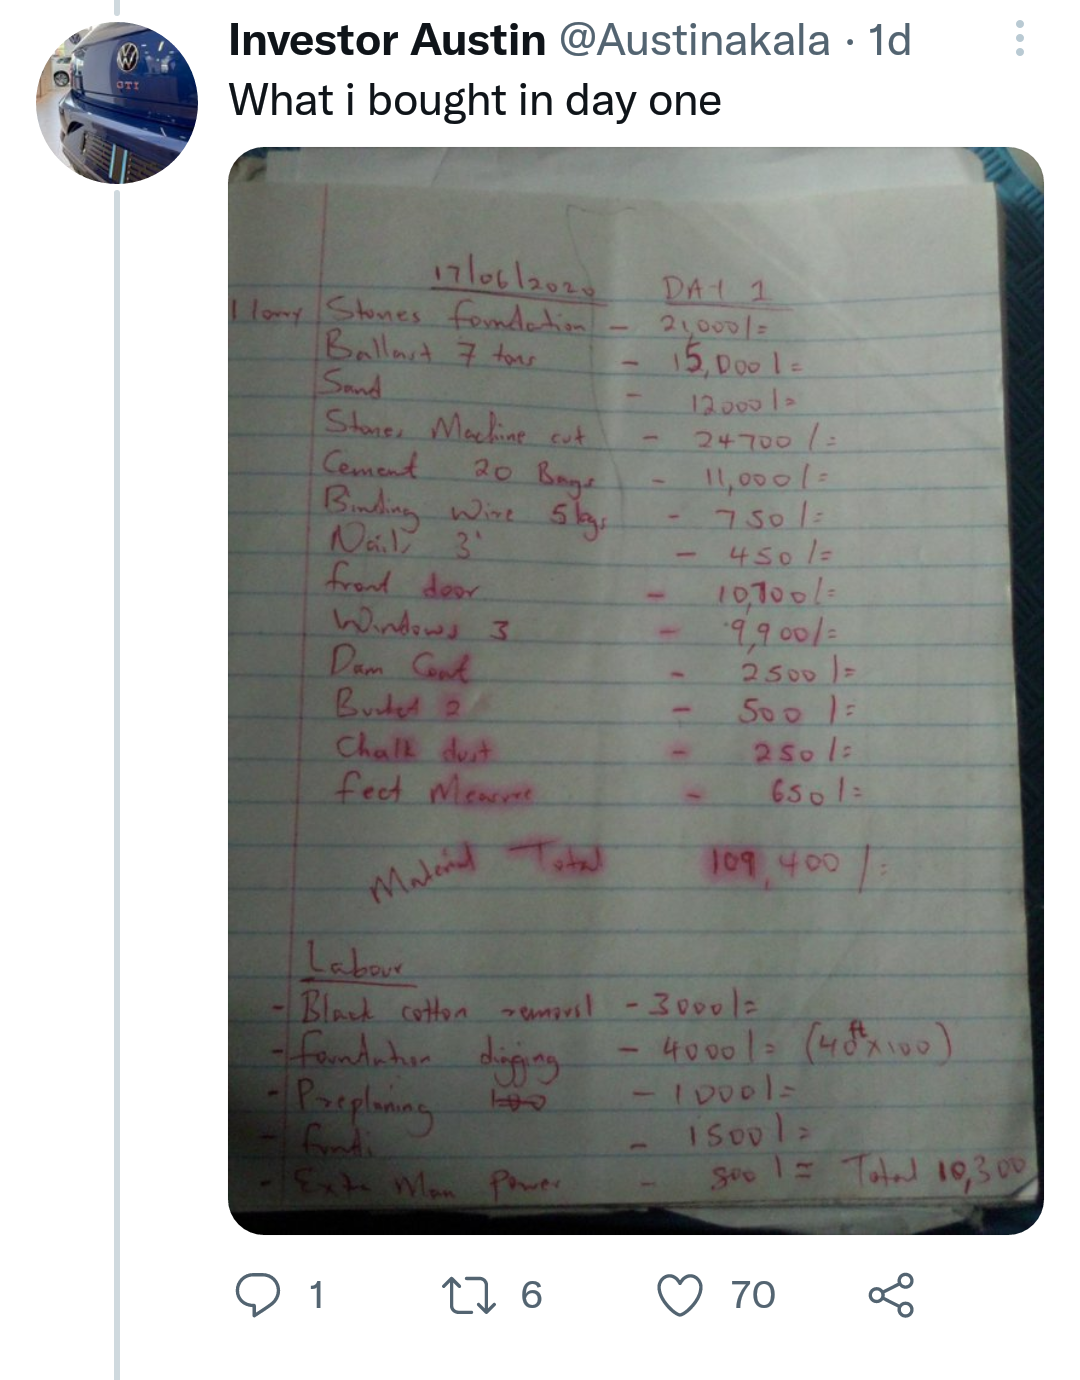 Investor Austin @Austinakala · 1d
What i bought in day one
17/06/2020 DAY 1
1 lorry Stones foundation - 21,000/=
Ballast 7 tons - 15,000/=
Sand - 12000/=
Stones Machine cut - 24700/=
Cement 20 Bags - 11,000/=
Binding Wire 5kgs - 750/=
Nails 3' - 450/=
front door - 10,700/=
Windows 3 - 9,900/=
Dam Coat - 2500/=
Bucket 2 - 500/=
Chalk dust - 250/=
feet Measure - 650/=
Material Total 109,400/=
Labour
- Black cotton removal - 3000/=
- foundation digging - 4000/= (40ft x100)
- Preplaning - 1000/=
- fundi - 1500/=
- Extra Man Power - 800/= Total 10,300
1 6 70
VW
GTI